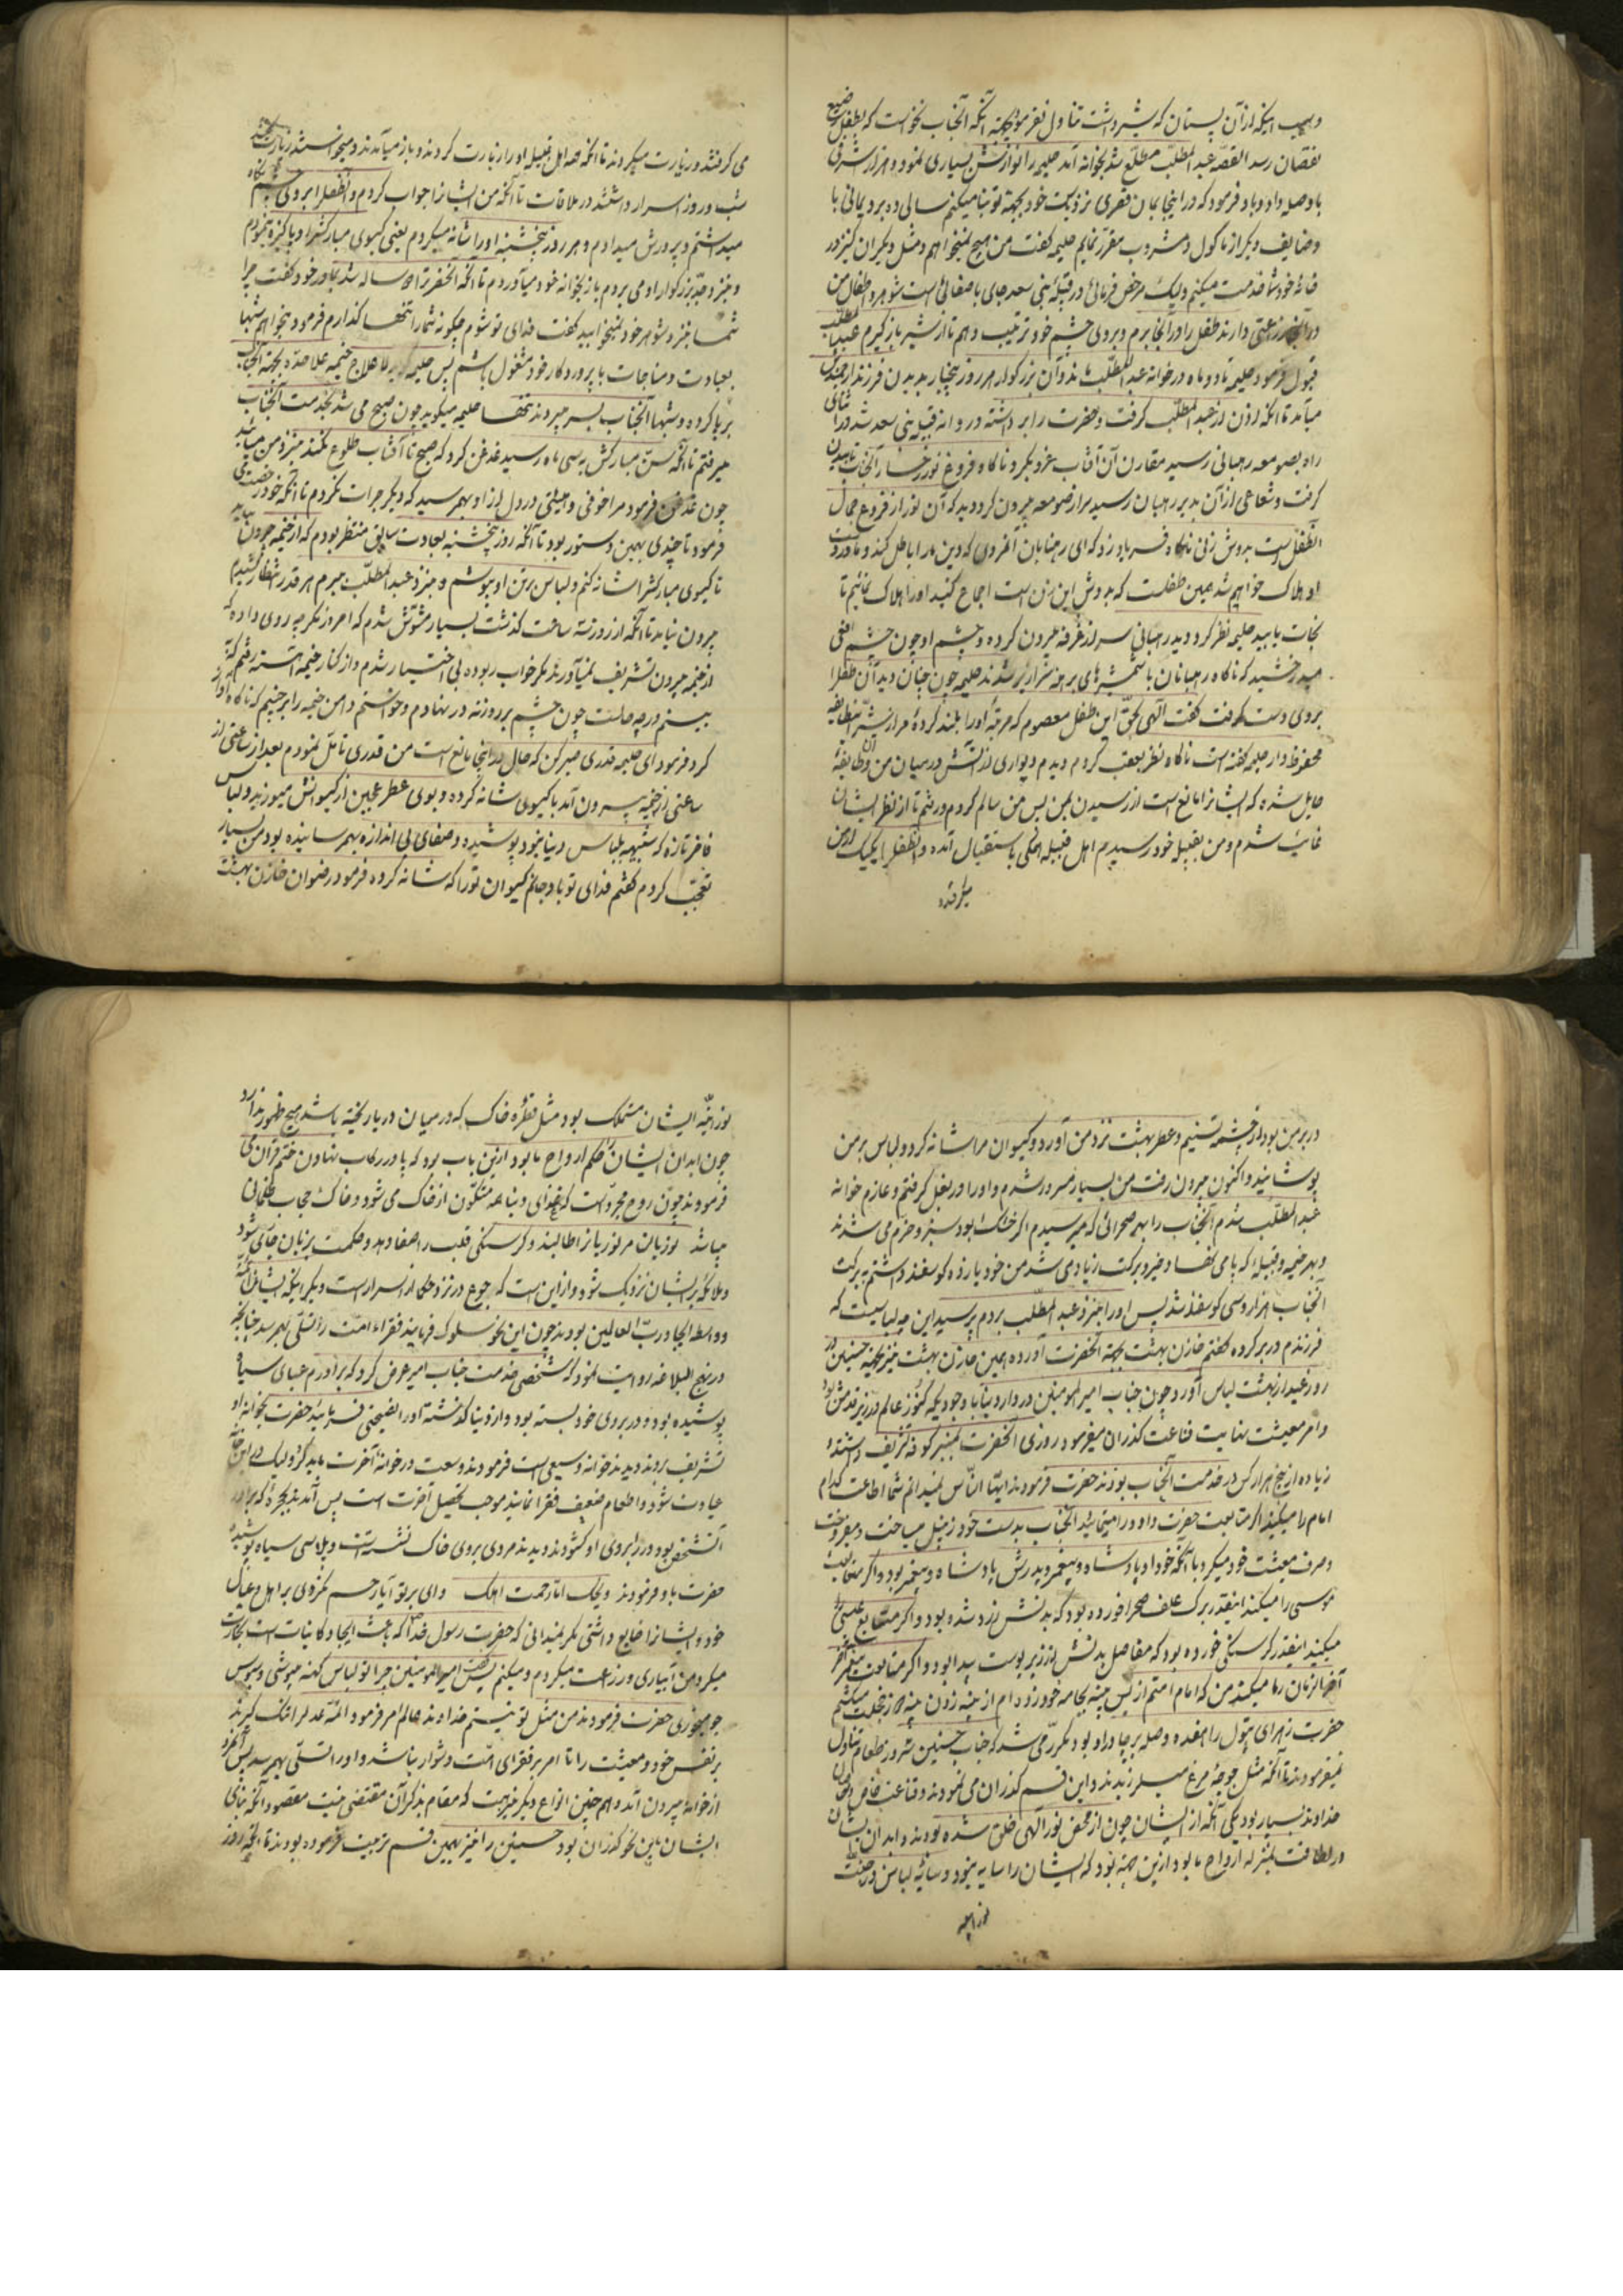 و سبب اینکه از آن پستان که شیر داشت تناول نفرمود بجهته آنکه آنجناب نخواست که بطفل رضیع
نقصان رسد القصه عبد المطلب مطلع شد بخوانه آمد حلیمه را نوازش بسیاری نمود و هزار اشرفی
باو صله داد و باو فرمود که در اینجا بمان قصری نزدیک خود بجهته تو بنا میکنم سالی ده برد یمانی با
وضایف دیگر از ماکول و مشروب مقرر نمایم حلیمه گفت من هیچ نمیخواهم و مثل دیگران کنیز در
خانهٔ خود شما خدمت میکنم ولیک مرخص فرمائی در قبیلهٔ بنی سعد جای باصفائی است شوهر و اطفال من
در آنجا زراعتی دارند طفل را در آنجا برم و بروی چشم خود تربیت دهم تا از شیر باز گیرم عبد المطلب
قبول فرمود حلیمه تا دو ماه در خوانه عبد المطلب ماند و آن بزرگوار هر روز پنجبار بدیدن فرزند ارجمندش
میآمد تا آنکه اذن از عبد المطلب گرفت و حضرت را برداشته و روانه قبیله بنی سعد شد در اثنای
راه بصومعه رهبانی رسید مقارن آن آفتاب غروب کرد ناگاه فروغ نور رخسار آنجناب تابیدن
گرفت و شعاعی از آن بدیر رهبان رسید سر از صومعه بیرون کرد دید که آن نور از فروغ جمال
آنطفل است بدوش زنی ناگاه فریاد زد که ای رهبانان آنمردی که دین ما را باطل کند و ما در دست
او هلاک خواهیم شد همین طفلست که بدوش این زن است اجماع کنید او را هلاک نمائیم تا
نجات یابید حلیمه نظر کرد دید رهبانی سر از غرفه بیرون کرده و چشم او چون چشم افعی
میدرخشید که ناگاه رهبانان با شمشیرهای برهنه سرازیر شدند حلیمه چون چنان دید آن طفل را
بروی دست گرفت گفت الهی بحق این طفل معصوم که مرتبهٔ او را بلند کردهٔ مرا از شر اینطایفه
محفوظ دار حلیمه گفته است ناگاه نظر بعقب کردم دیدم دیواری از آتش در میان من و آن طایفه
حایل شده که ایشانرا مانع است از رسیدن بمن پس من سالم کردم و رفتم تا از نظر ایشان
غایب شدم و من بقبیله خود رسیدم اهل قبیله همگی باستقبال آمده و آنطفل را یک یک از من
میگرفتند
می گرفتند و زیارت میکردند تا آنکه همه اهل قبیله او را زیارت کردند و باز میآمدند و میخواستند زیارت کنند
شب و روز اسرار داشتند در ملاقات تا آنکه من ایشانرا جواب کردم و آنطفل را بروی چشم نگاه
میداشتم و پرورش میدادم و هر روز پنجشنبه او را شانه میکردم یعنی گیسوی مبارکش را و پاکیزه نموده
و بنزد جد بزرگوار او می بردم باز بخوانه خود میآوردم تا آنکه آنحضرت ساله شد بمادر خود گفت چرا
شما بنزد شوهر خود نمیخوابید گفت فدای تو شوم چگونه شما را تنها گذارم فرمود میخواهم شبها
بعبادت و مناجات با پروردگار خود مشغول باشم پس حلیمه لا علاج خیمه علاحده بجهته آنجناب
برپا کرده و شبها آنجناب بسر میبردند تنها حلیمه میگوید چون صبح می شد بخدمت آنجناب
میرفتم تا آنکه سن مبارکش به سی ماه رسید غدغن کرد که صبح تا آفتاب طلوع نکند بنزد من میائید
چون غدغن فرمود مرا خوفی و هیبتی در دل از او بهمرسید که دیگر جرات نکردم تا آنکه خود رخصت دهی
فرمود تا چندی بهمین دستور بود تا آنکه روز پنجشنبه بعادت سابق منتظر بودم که از خیمه بیرون بیاید
تا گیسوی مبارکش را شانه کنم و لباس برتن او بپوشم و بنزد عبد المطلب ببرم هر قدر انتظار کشیدم
بیرون نیامد تا آنکه از روز سه ساعت گذشت بسیار مشوش شدم که امروز مگر چه روی داده که
از خیمه بیرون تشریف نمیآورند مگر خواب ربوده بی اختیار شدم و از کنار خیمه آهسته رفتم که
ببینم در چه حالست چون چشم بر روزنه در نهادم و خواستم دامن خیمه را برچینم که ناگاه آواز
کرد فرمود ای حلیمه قدری صبر کن که حال در اینجا مانع است من قدری تامل نمودم بعد از ساعتی از
ساعتی از خیمه بیرون آمد با گیسوی شانه کرده و بوی عطر عجبین از گیسوانش میوزید و لباس
فاخر تازه که شبیه بلباس دنیا نبود پوشیده و صفای بی اندازه بهمرسانیده بود من بسیار
تعجب کردم گفتم فدای تو باد جانم گیسوان تو را که شانه کرده فرمود رضوان خازن بهشت
در بر من بود از چشمه تسنیم و عطر بهشت نزد من آورد و گیسوان مرا شانه کرد و لباس بر من
پوشانید و اکنون بیرون رفت من بسیار مسرور شدم و او را در بغل گرفتم و عازم خوانه
عبد المطلب شدم آنجناب را بهر صحرائی که میرسیدم اگر خشک بود سبز و خرم می شدند
و بهر خیمه و قبیلهٔ که پا می نهاد خیر و برکت زیاد می شد من خود یازده گوسفند داشتم به برکت
آنجناب هزار و سی گوسفند شد پس او را بنزد عبد المطلب بردم پرسید این چه لباسیست که
فرزندم در بر کرده گفتم خازن بهشت بجهته آنحضرت آورده همین خازن بهشت نیز بجهته حسنین در
روز عید از بهشت لباس آورد و چون جناب امیر المومنین در دار دنیا با وجودیکه کنوز عالم در زیر قدمش بود
و امر معیشت نهایت قناعت گذران میفرمود روزی آنحضرت بمنبر کوفه تشریف داشتند و
زیاده از پنج هزار کس در خدمت آنجناب بودند حضرت فرمودند ایها الناس نمیدانم شما اطاعت کدام
امام را میکنید اگر متابعت حضرت داود را مینمائید آنجناب بدست خود زنبیل میساخت و میفروخت
و صرف معیشت خود میکرد با آنکه خود او پادشاه و پیغمبر و پدرش پادشاه و پیغمبر بود و اگر متابعت
موسی را میکنید اینقدر برگ علف صحرا خورده بود که بدنش زرد شده بود و اگر متابع عیسی را
میکنید اینقدر گرسنگی خورده بود که مفاصل بدنش از زیر پوست پیدا بود و اگر متابعت پیغمبر
آخر الزمان را میکنید من که امام امتم از بس پینه بجامه خود زده ام از پینه زدن پینه دوز خجلت میکشم
حضرت زهرای بتول را هفده وصله بر چادر او بود مکرر می شد که جناب حسنین سه روز طعام تناول
نمیفرمودند تا آنکه مثل جوجهٔ مرغ میلرزیدند و این قسم گذران می نمودند و قناعت
خداوند بسیار بود یکی آنکه از ایشان چون از محض نور الهی خلق شده بودند و ابدان ایشان
در لطافت بمنزله ارواح ما بود از این جهته بود که ایشان را سایه نبود و سایه لباس در جنب
نور جبه
نور جبه ایشان متهلک بود مثل قطرهٔ خاک که در میان دریا ریخته باشد هیچ ظهور ندارد
چون ابدان ایشان حکم ارواح ما بود از این باب بود که پا در رکاب نهادن ختم قرآن می
فرمودند چون روح مجرد است که غذای دنیا همه متکون از خاک می شود و خاک حجاب ظلمانی
میباشد نوریان مر نوریانرا طالبند و گرسنگی قلب را صفا دهد و حکمت بزبان جاری شود
و ملائکه بر ایشان نزدیک شود و از این است که جوع در نزد حکما از اسرار است و دیگر اینکه ایشان ائمه
و واسطه ایجاد رب العالمین بودند چون این نحو سلوک فرمایند فقراء امت را تسلی بهمرسد چنانچه
در نهج البلاغه روایت نمود که شخصی خدمت جناب امیر عرض کرد که برادرم عبای سیاه
پوشیده بود و در بروی خود بسته بود و از دنیا گذشته او را نصیحتی فرمائید حضرت بخوانه او
تشریف بردند دیدند خوانه وسیعی است فرمودند وسعت در خوانهٔ آخرت باید کرد ولیک در این خانه
عبادت شود و اطعام ضعیف فقرا نمایند موجب تحصیل آخرت است پس آمدند بحجرهٔ که برادر
آنشخص بود در را بروی او گشودند دیدند مردی بروی خاک نشسته است و پلاسی سیاه پوشیده
حضرت باو فرمودند ویلک اما رحمت اهلک وای بر تو آیا رحم نکردی بر اهل و عیال
خود و ایشانرا ضایع داشتی مگر نمیدانی که حضرت رسول خدا که باعث ایجاد کاینات است تجارت
میکرد و من آبیاری و زراعت میکردم و میکنم گفت یا امیر المومنین چرا تو لباس کهنه میپوشی و سبوس
جو میخوری حضرت فرمودند من مثل تو نیستم خداوند عالم امر فرمود ائمه عدل را تنگ گیرند
بر نفس خود و معیشت را تا امر بر فقرای امت دشوار نباشد و او را تسلی بهمرسد پس آنمرد
از خوانه بیرون آمد و همچنین انواع دیگر نیز هست که مقام بذکر آن مقتضی نیست مقصود آنکه بنای
ایشان باین نحو گذران بود حسنین را نیز بهمین قسم تربیت فرموده بودند تا اینکه روز